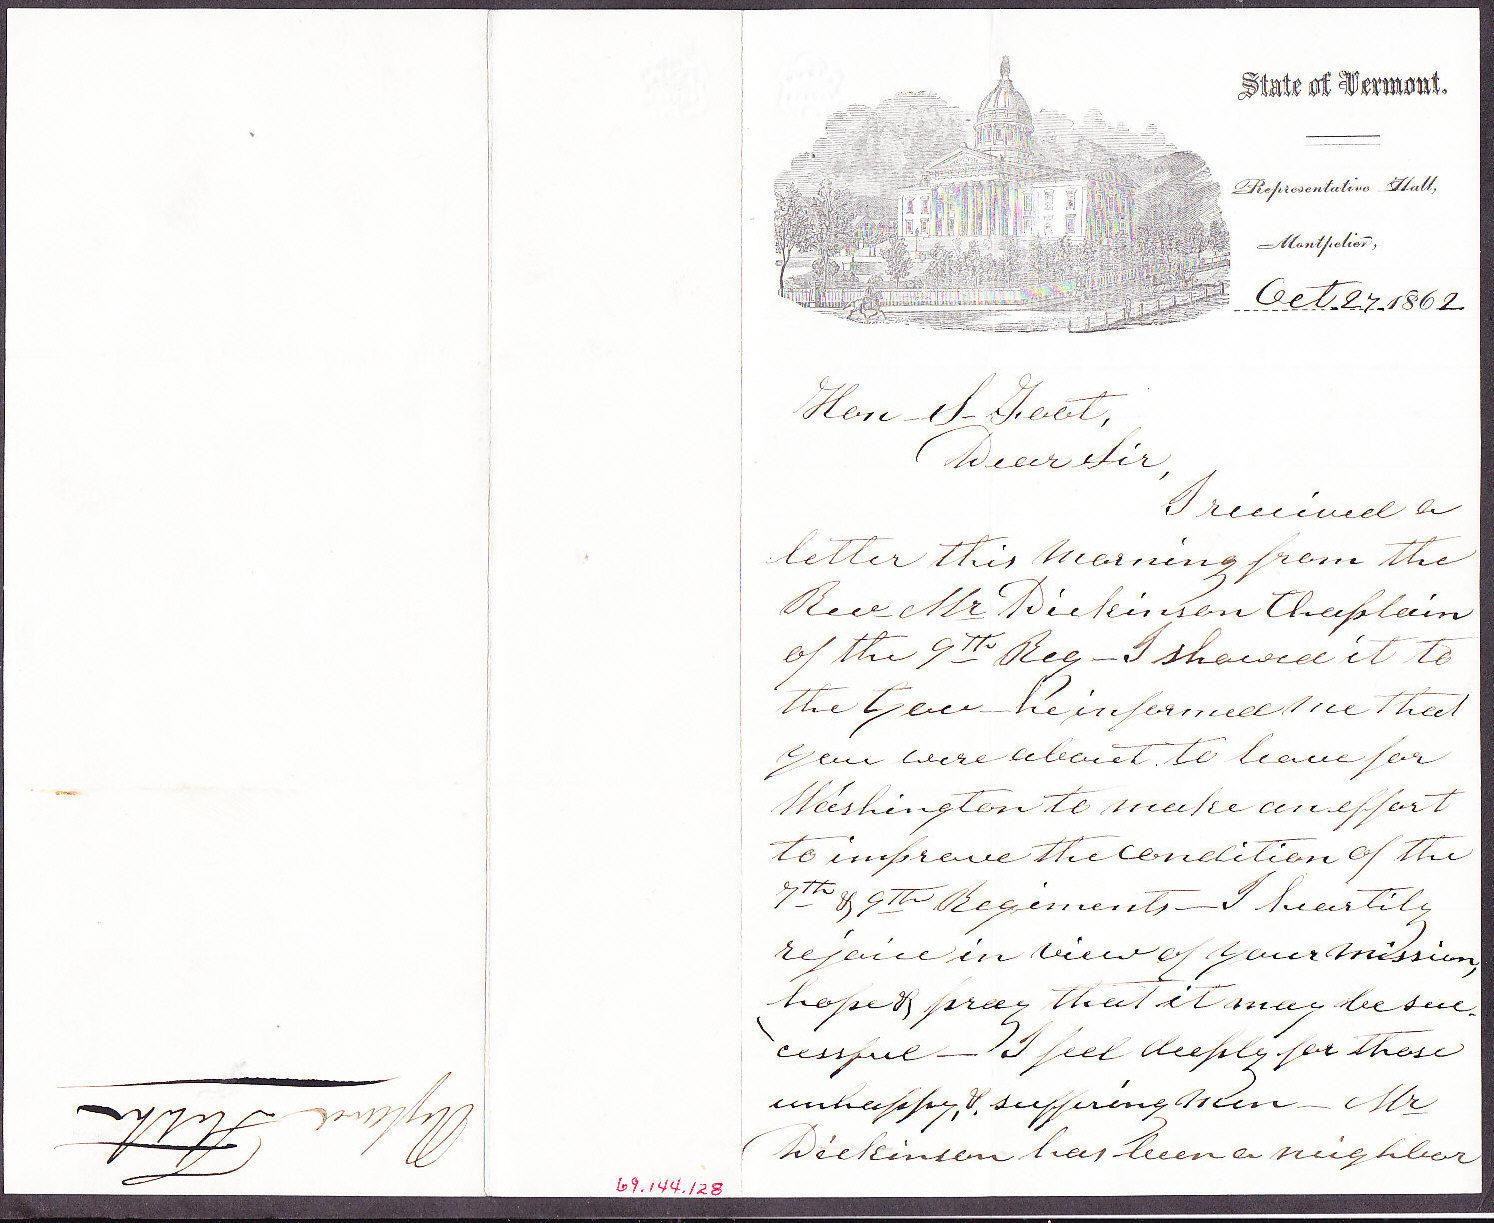 State of Vermont.
Representative Hall,
Montpelier,
Oct. 27. 1862
Hon S- Foot,
Dear Sir,
I received a
letter this morning from the
Rev Mr Dickinson Chaplain
of the 9th Reg - I showed it to
the Gov - he informed me that
you were about to leave for
Washington to make an effort
to improve the condition of the
7th & 9th Regiments - I heartily
rejoice in view of your mission,
hope & pray that it may be suc-
cessful - I feel deeply for those
unhappy, & suffering men - Mr
Dickinson has been a neighbor
69.144.128